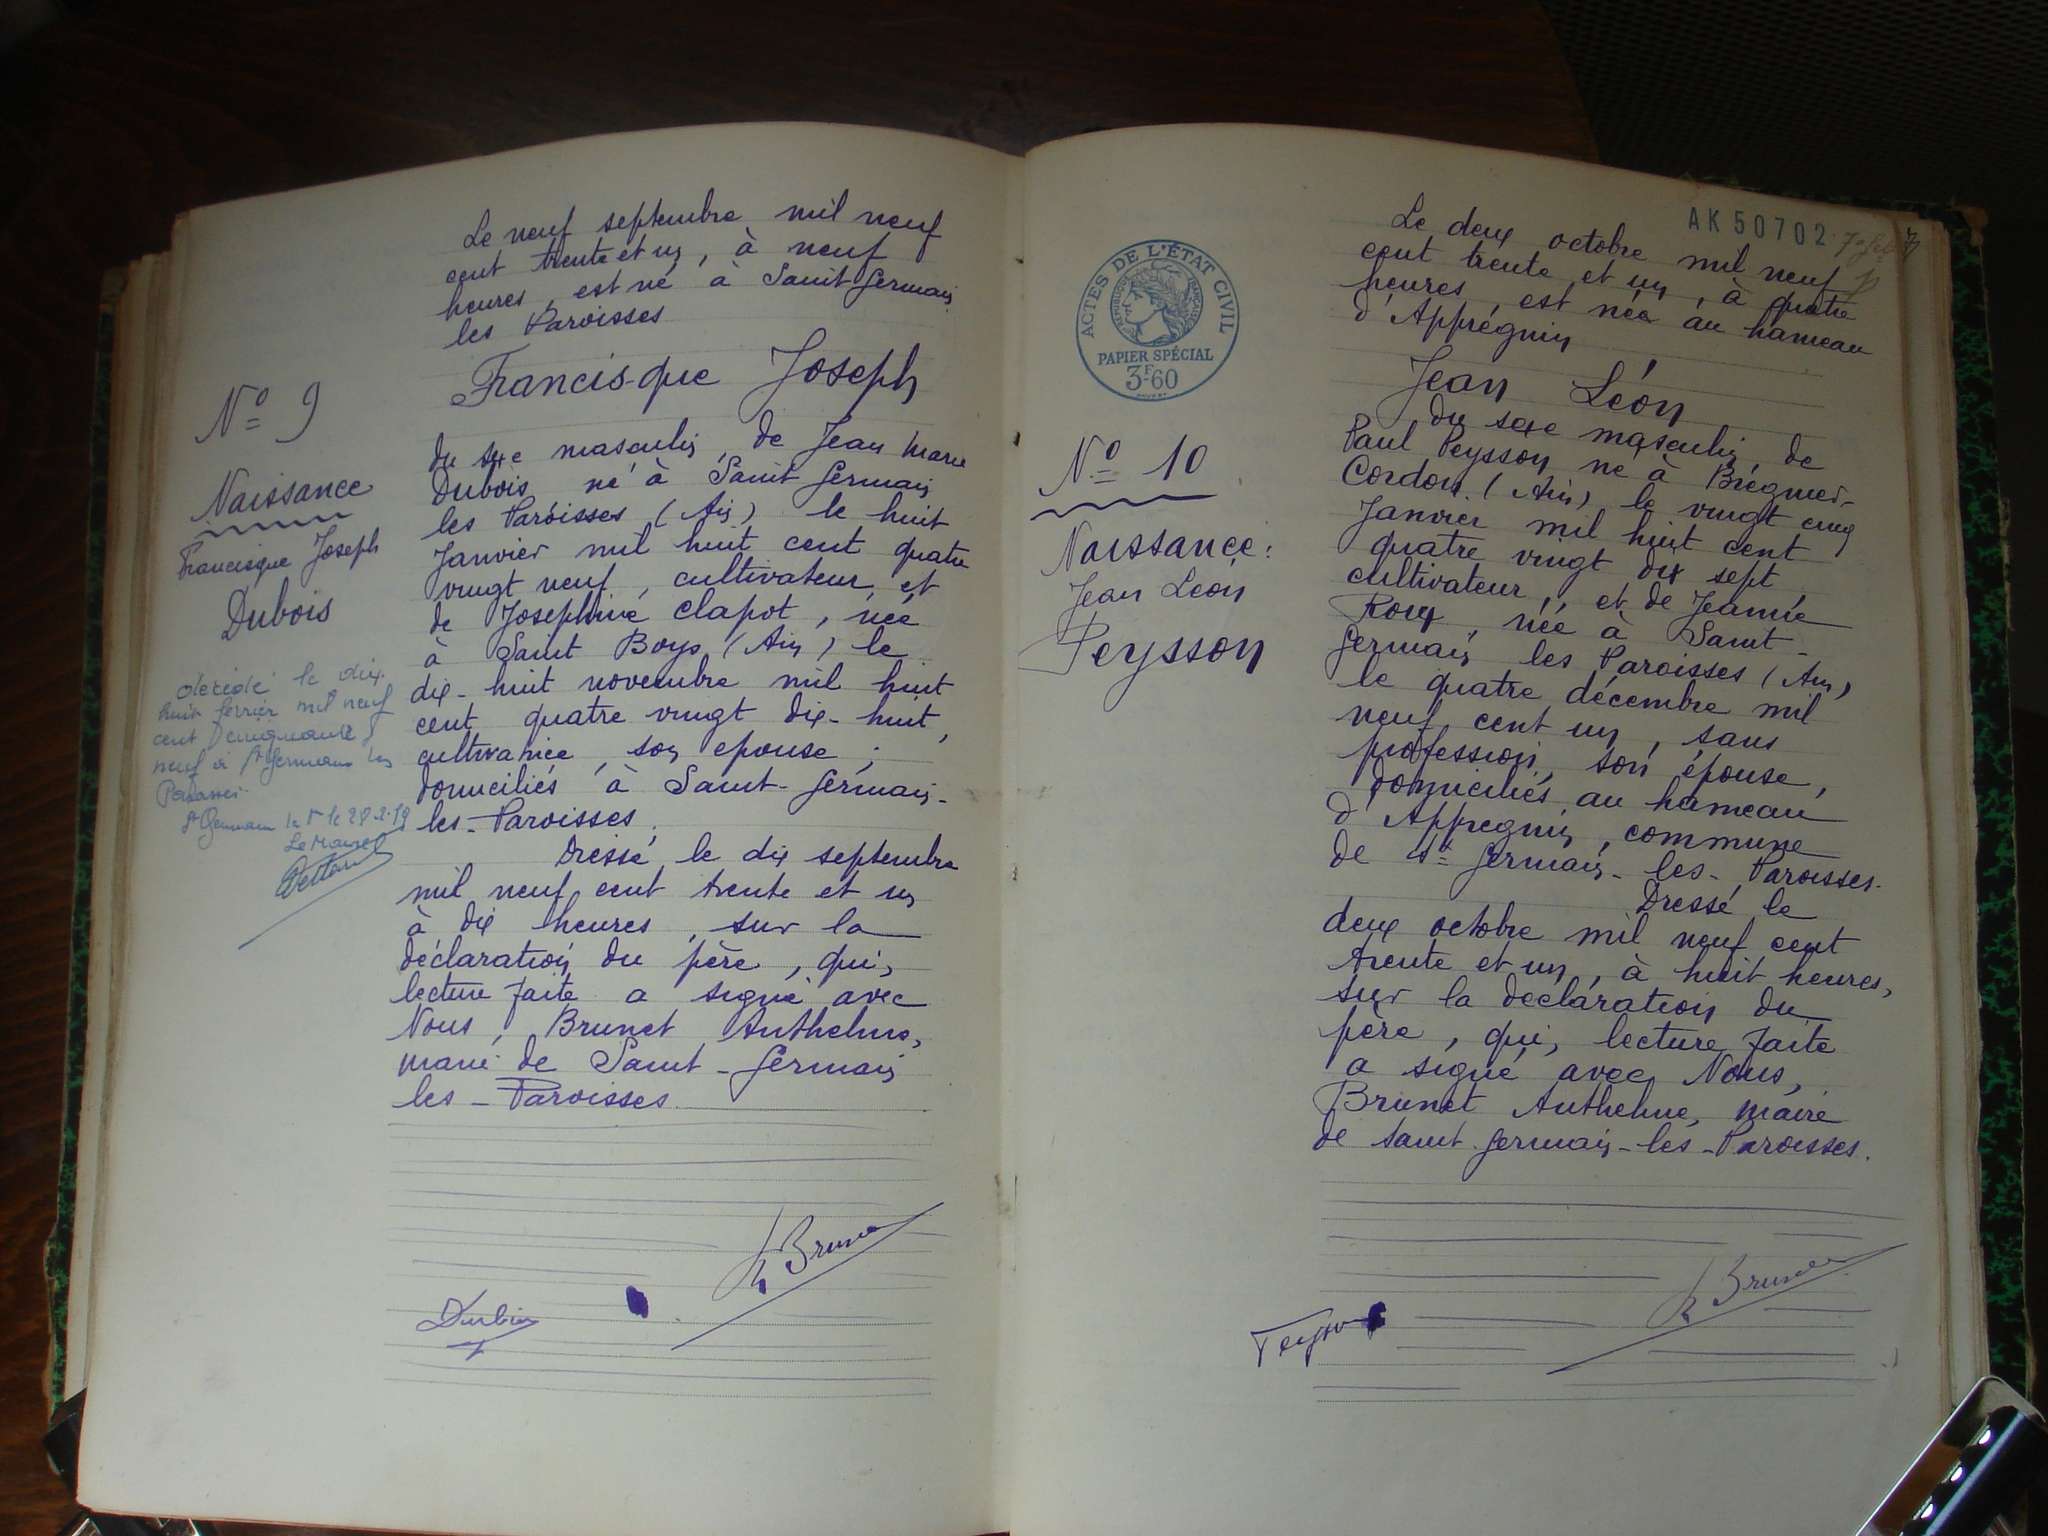 Le neuf septembre mil neuf
cent trente et un, à neuf
heures, est né à Saint Germain
les Paroisses
Francisque Joseph
N° 9
Naissance
Francisque Joseph
Dubois
décédé le dix
huit février mil neuf
cent cinquante
neuf à St Germain les
Paroisses
St Germain les P le 28.2.59
Le Maire
du sexe masculin, de Jean Marie
Dubois né à Saint Germain
les Paroisses (Ain) le huit
Janvier mil huit cent quatre
vingt neuf, cultivateur, et
de Joséphine Clapot, née
à Saint Boys (Ain) le
dix-huit novembre mil huit
cent quatre vingt dix-huit,
cultivatrice, son épouse ;
domiciliés à Saint-Germain-
les-Paroisses.
Dressé le dix septembre
mil neuf cent trente et un
à dix heures, sur la
déclaration du père, qui,
lecture faite a signé avec
Nous, Brunet Anthelme,
maire de Saint-Germain
les-Paroisses.
Brunet
AK 50702
7
Le deux octobre mil neuf
cent trente et un, à quatre
heures, est née au hameau
d'Apprégnin
ACTES DE L'ÉTAT CIVIL
RÉPUBLIQUE FRANÇAISE
PAPIER SPÉCIAL
3F60
Jean Léon
N° 10
Naissance :
Jean Léon
Peysson
du sexe masculin, de
Paul Peysson né à Brégnier-
Cordon (Ain) le vingt cinq
Janvier mil huit cent
quatre vingt dix sept,
cultivateur, et de Jeanne
Roux, née à Saint-
Germain les Paroisses (Ain)
le quatre décembre mil
neuf cent un, sans
profession, son épouse,
domiciliés au hameau
d'Apprégnin, commune
de St Germain-les-Paroisses.
Dressé le
deux octobre mil neuf cent
trente et un, à huit heures,
sur la déclaration du
père, qui, lecture faite
a signé avec Nous,
Brunet Anthelme, maire
de Saint-Germain-les-Paroisses.
Brunet
Peysson